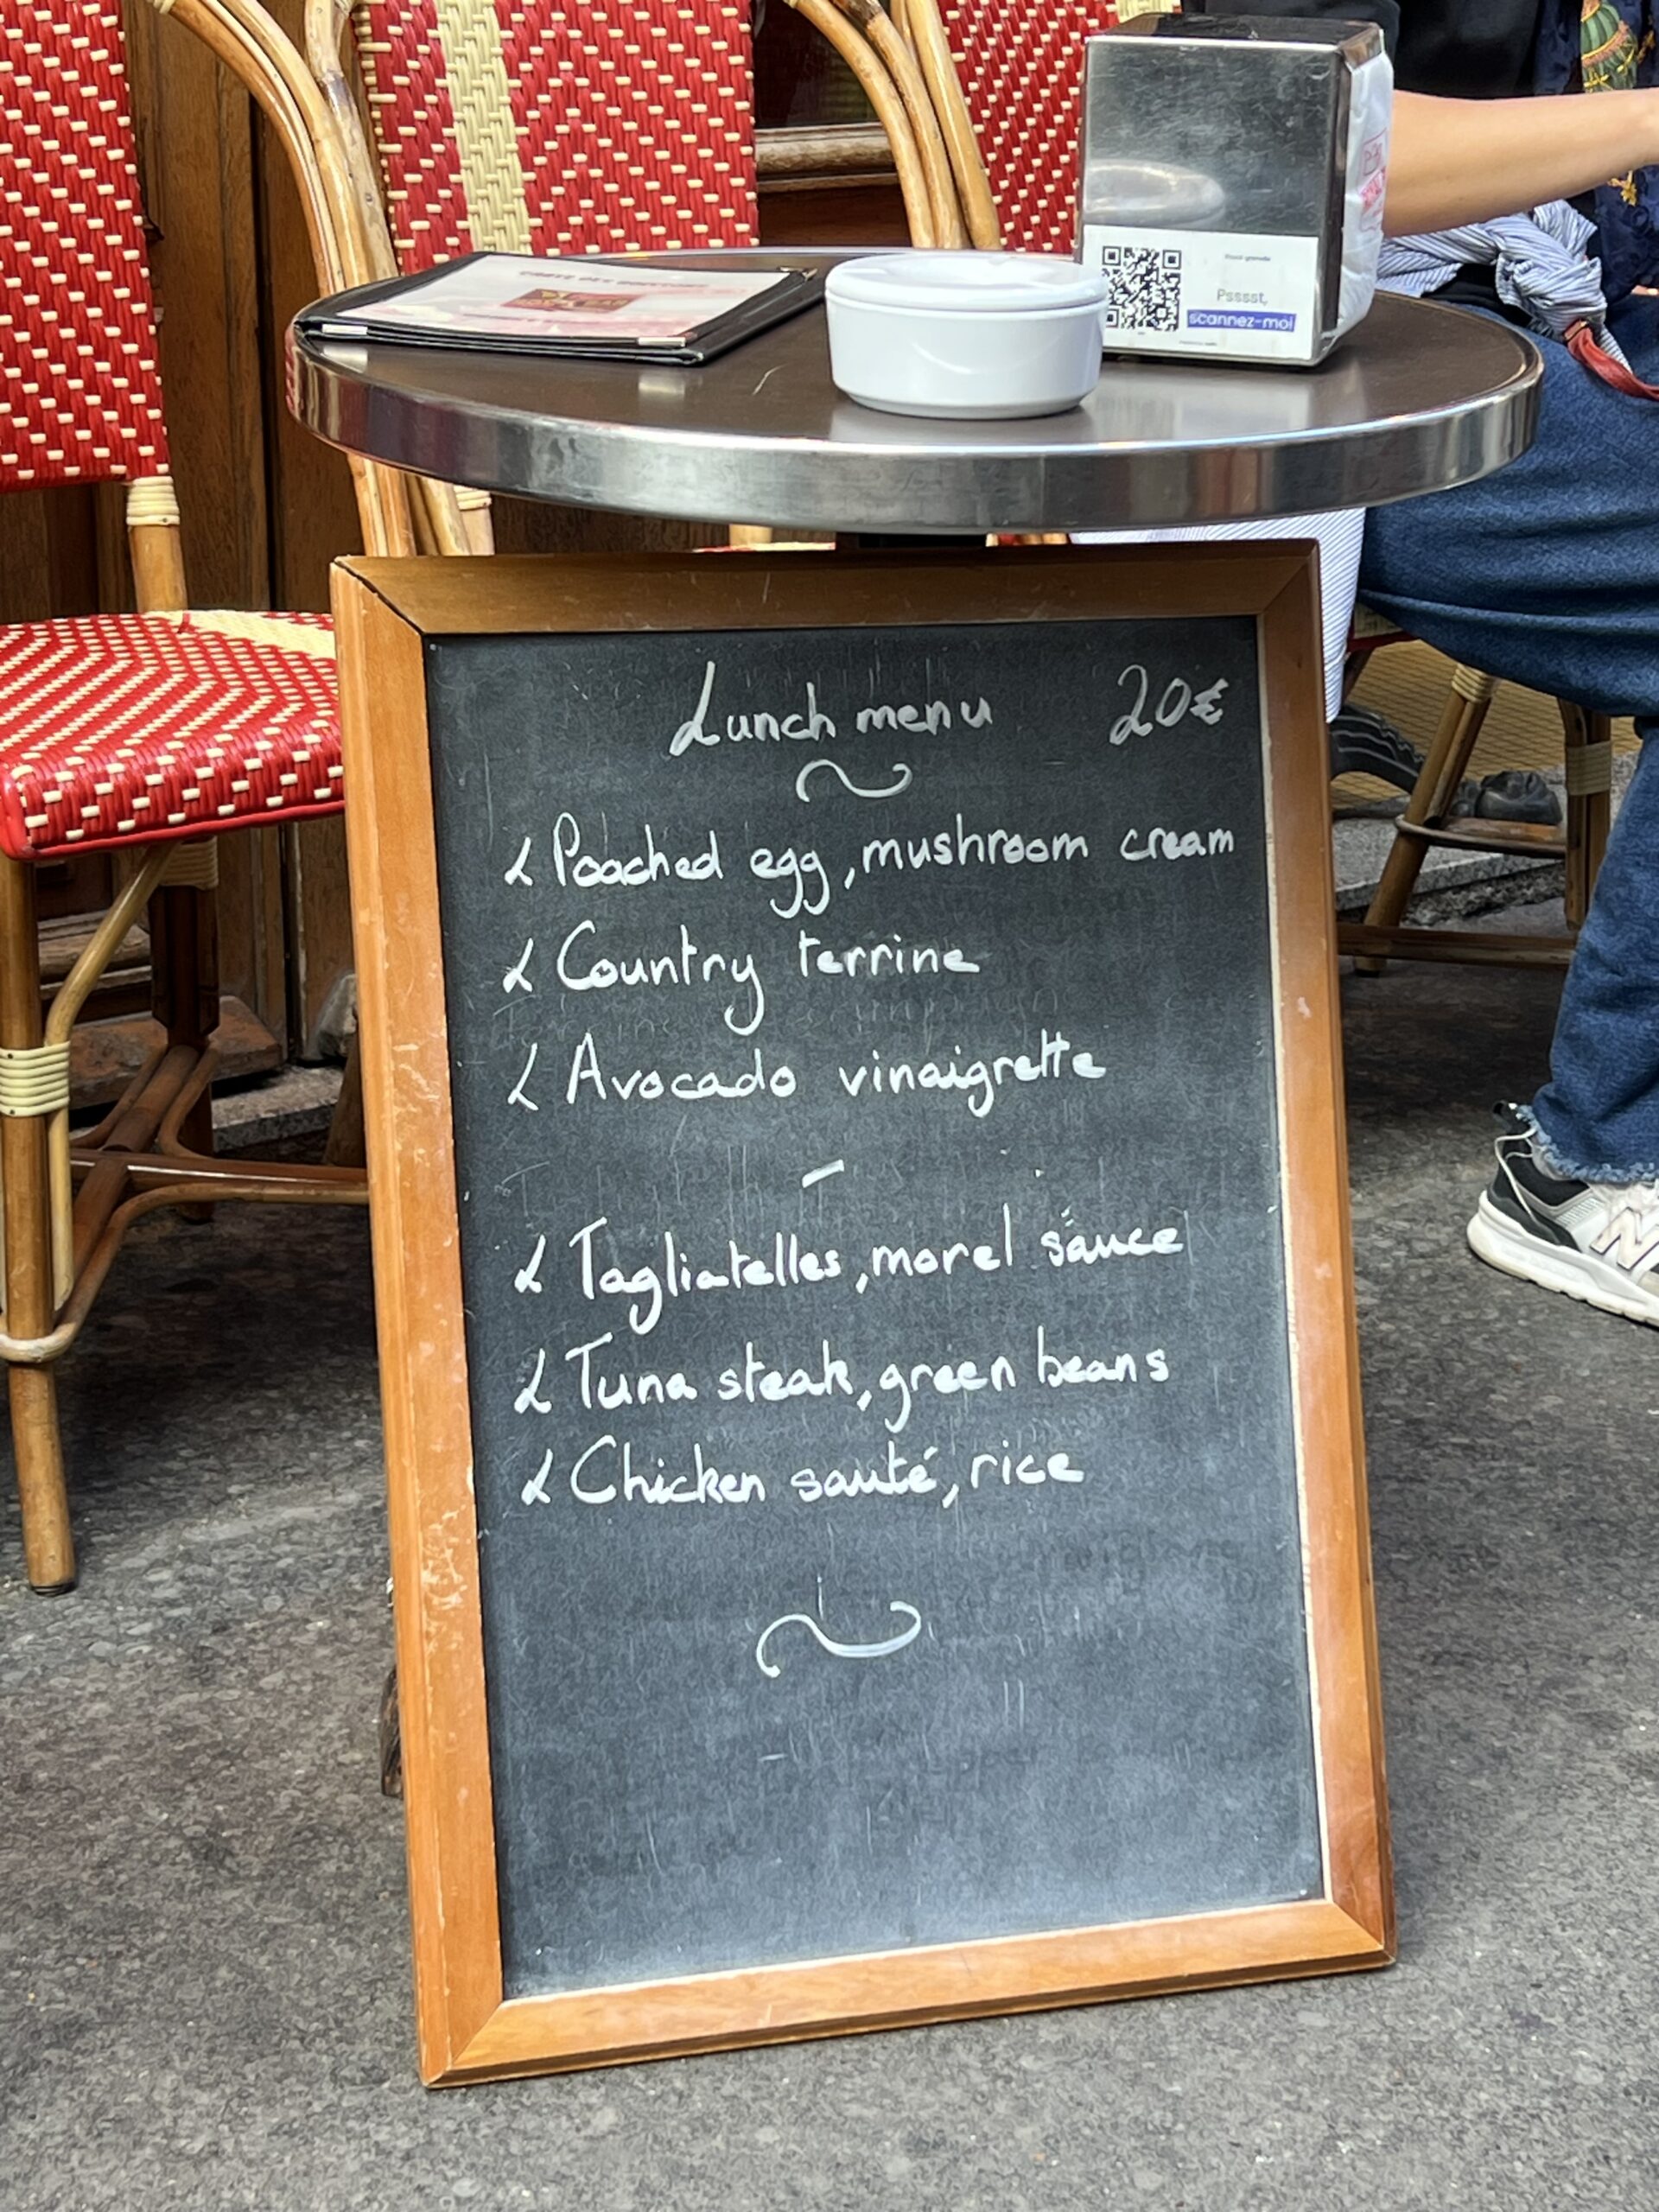 Psssst,
scannez-moi
Lunch menu 20€
Poached egg, mushroom cream
Country terrine
Avocado vinaigrette
-
Tagliatelles, morel sauce
Tuna steak, green beans
Chicken sauté, rice